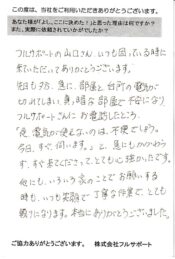 この度は、当社をご利用いただきありがとうございます。
あなた様が「よし、ここに決めた！」と思った理由は何ですか？
また、実際に依頼されていかがでしたか？
フルサポートの山口さん、いつも困っている時に
来ていただいてありがとうございます。
先日も夕方、急に部屋と台所の電気が
切れてしまい、真暗な部屋で不安になり
フルサポートさんにお電話したところ、
「是非電気が使えないのは、不便でしょう。
今日、すぐ、伺います。」と、急にもかかわらず、
すぐ来てくださって、とても心強かったです。
他にも、いろいろ家のことでお願いする
時も、いつも笑顔で丁寧な作業で、とても
頼りになります。本当にありがとうございました。
ご協力ありがとうございます。 株式会社フルサポート